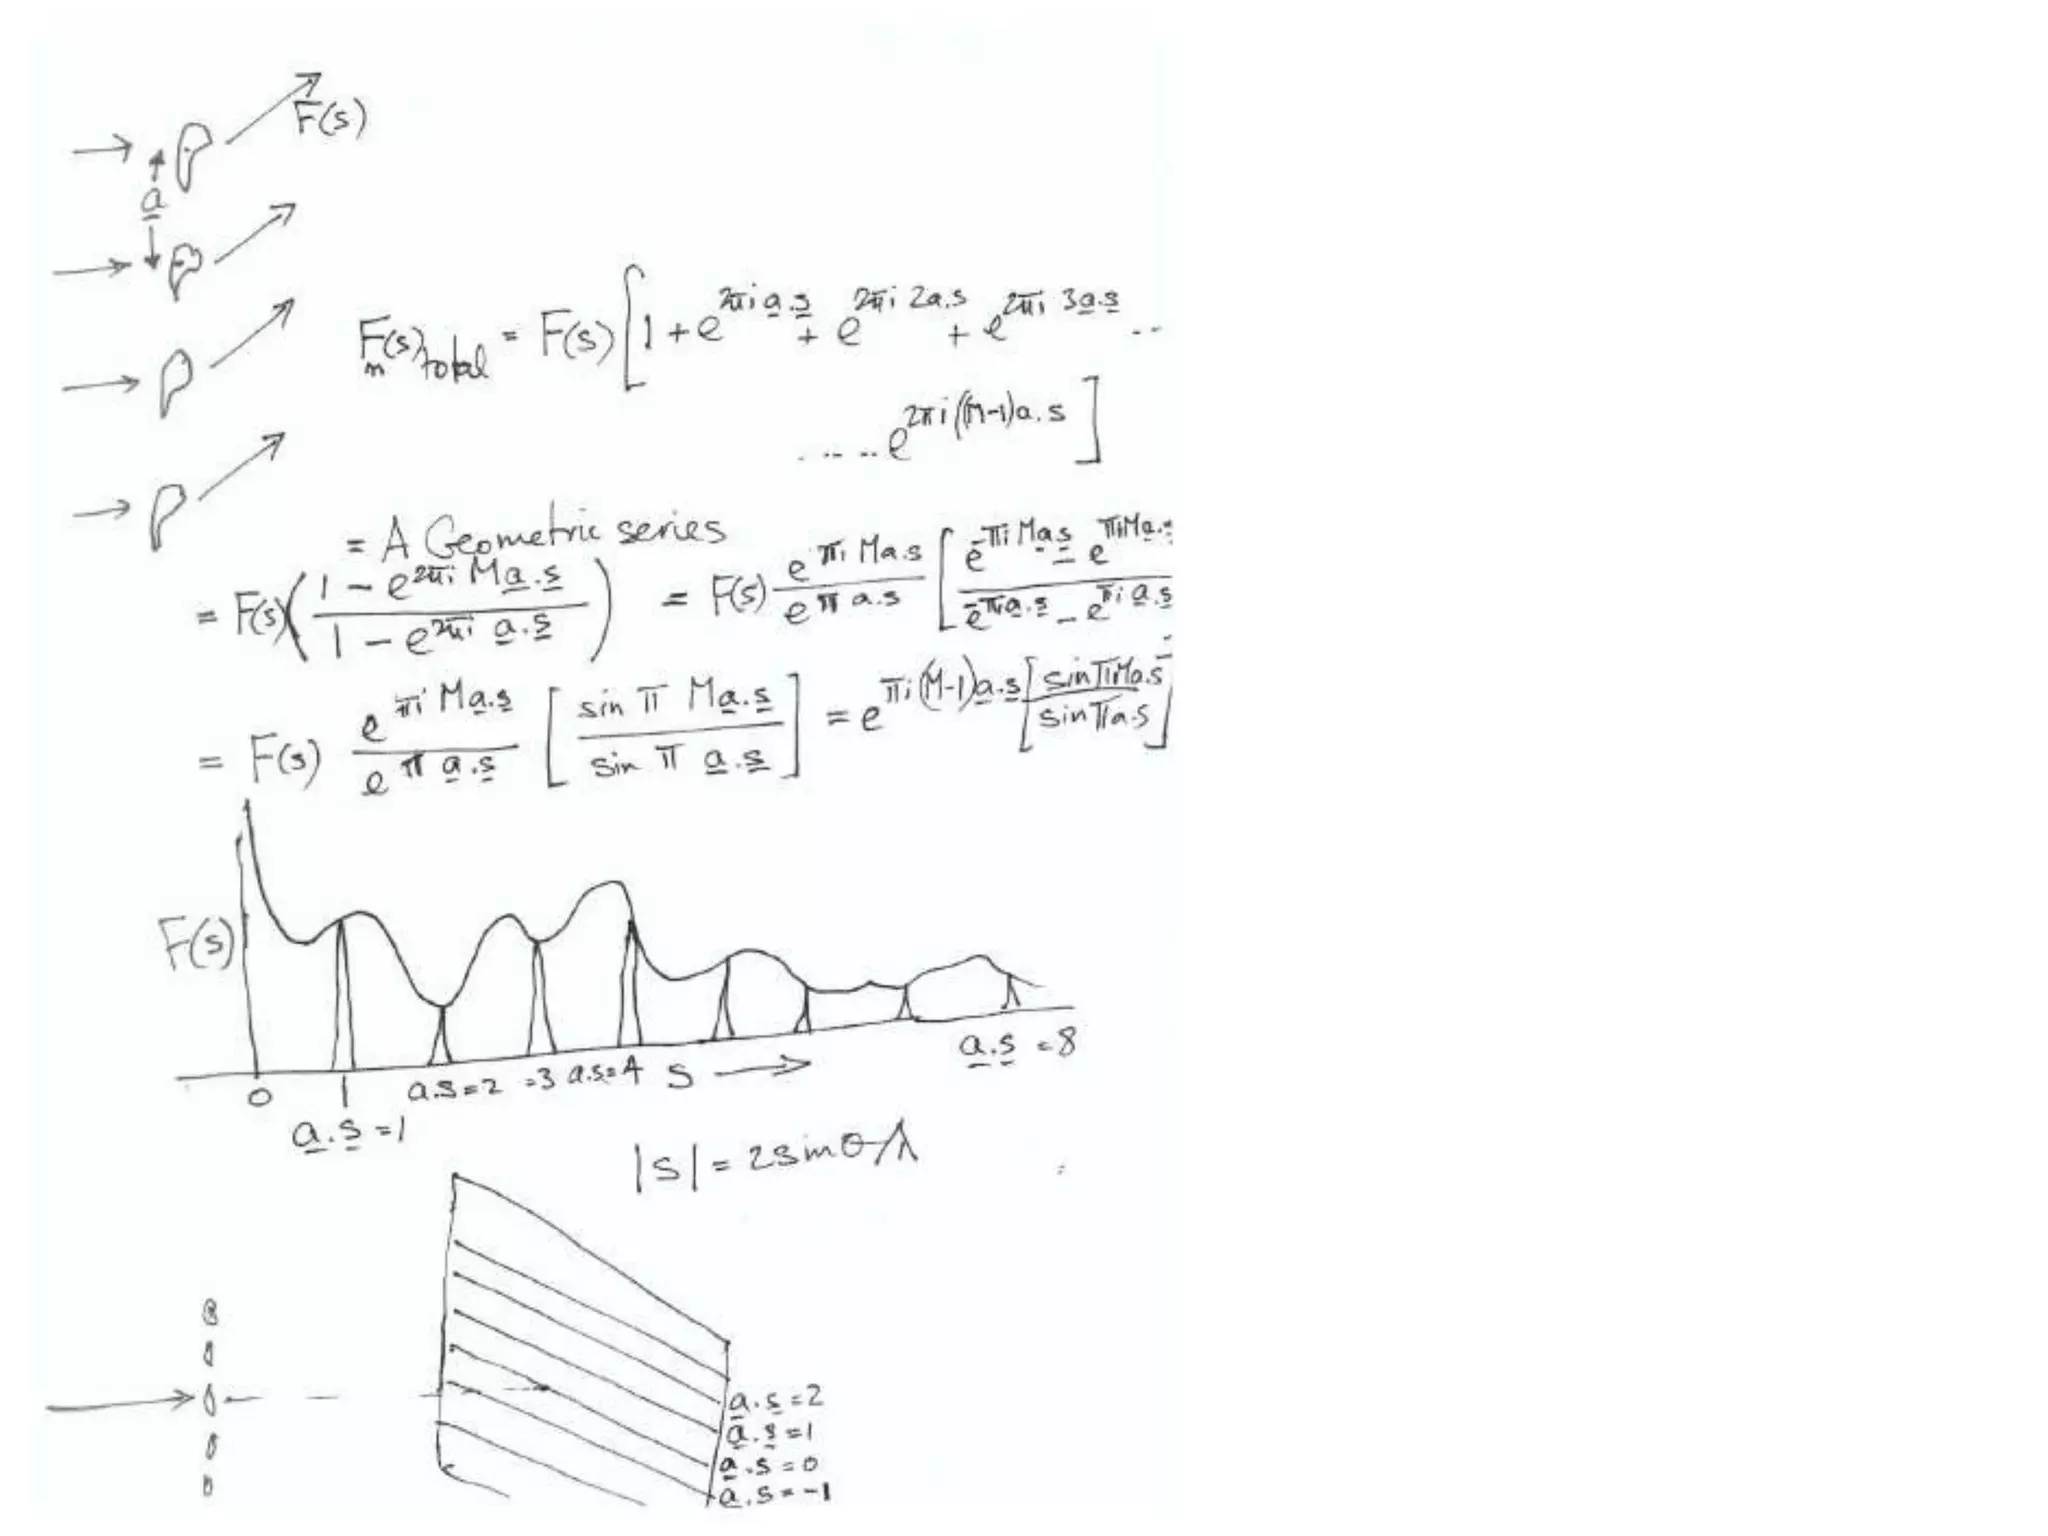 F(s)
a
F_m(s)_total = F(s) [ 1 + e^{2πi a.s} + e^{2πi 2a.s} + e^{2πi 3a.s} ...
..... e^{2πi (M-1)a.s} ]
= A Geometric series
= F(s) ( (1 - e^{2πi Ma.s}) / (1 - e^{2πi a.s}) ) = F(s) e^{πi Ma.s} / e^{π a.s} [ (e^{-πi Ma.s} - e^{πiMa.s}) / (e^{-πia.s} - e^{πi a.s})
= F(s) e^{πi Ma.s} / e^{π a.s} [ sin π Ma.s / sin π a.s ] = e^{πi(M-1)a.s} [ sinπMa.s / sinπa.s ]
F(s)
0 1 a.s=2 =3 a.s=4 s a.s=8
a.s=1
|s| = 2sinθ/λ
a.s=2
a.s=1
a.s=0
a.s=-1